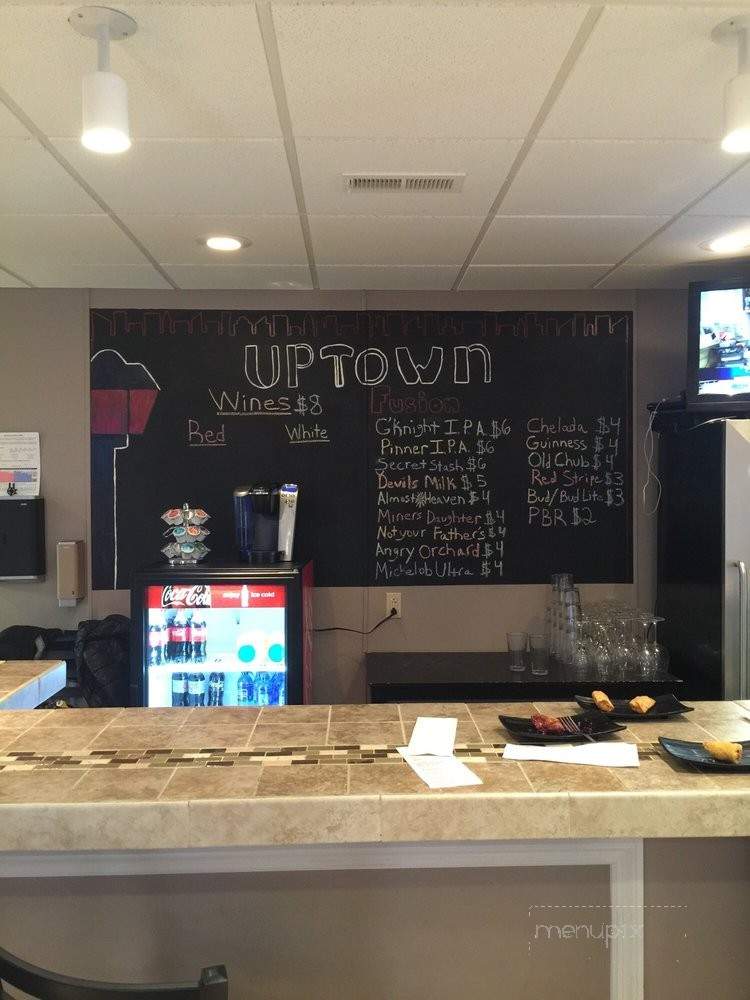 UPTOWN
Fusion
Wines $8
Red White
G'Knight I.P.A. $6
Pinner I.P.A. $6
Secret Stash $6
Devils Milk $5
Almost Heaven $4
Miners Daughter $4
Not your Father's $4
Angry Orchard $4
Michelob Ultra $4
Chelada $4
Guinness $4
Old Chub $4
Red Stripe $3
Bud/Bud Lite $3
PBR $2
Coca-Cola enjoy ice cold
menupix